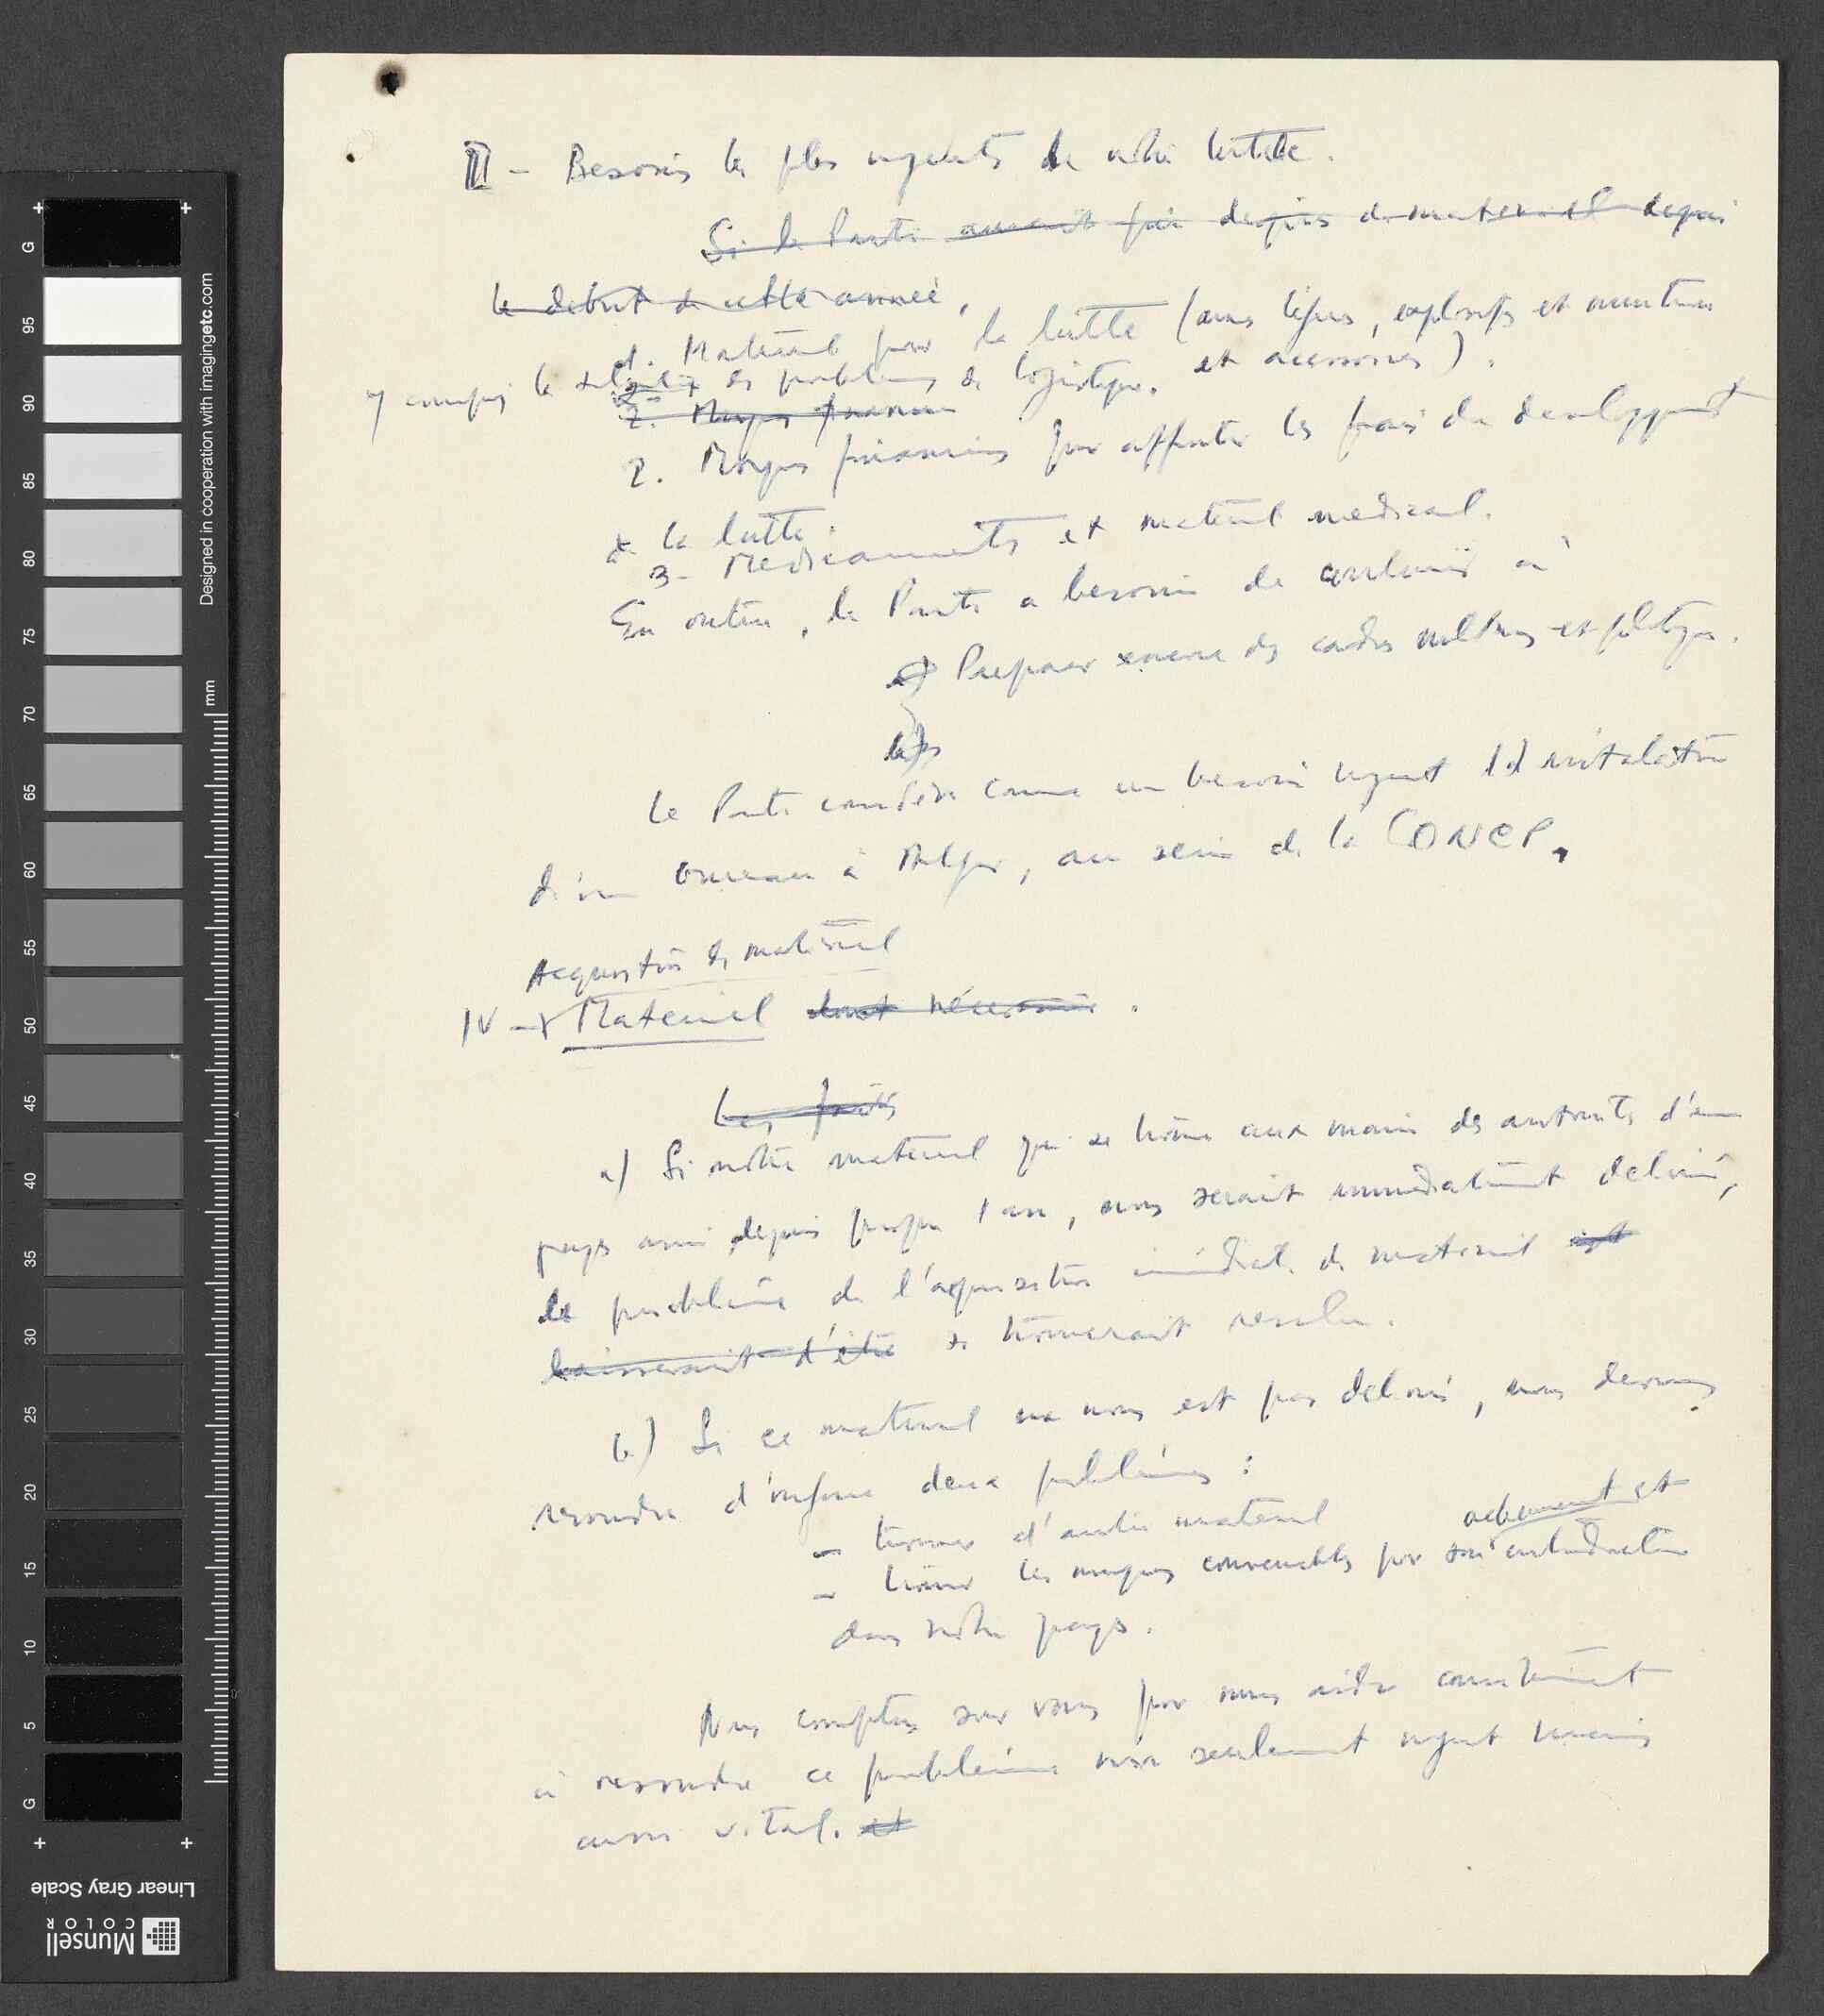 III - Besoins les plus urgents de notre lutte.
Si le Parti aurait pu du matériel depuis
le début de cette année,
1. Matériel pour la lutte (armes légères, explosifs et munitions
et accessoires).
y compris la des problèmes de logistique.
2. Moyens financiers
2. Moyens financiers pour affronter les frais du developpement
de la lutte.
3- Medicaments et materiel medical.
En outre, le Parti a besoin de continuer à
a) Preparer encore des cadres militaires et politiques.
b)
Le Parti considère comme un besoin urgent l'installation
d'un bureau à Alger, au sein de la CONCP.
Acquisition de matériel
IV - Materiel dont nécessaire.
Les
a) Si notre materiel qui se trouve aux mains des autorités d'un
pays ami depuis presque 1 an, nous serait immédiatement delivré,
le problème de l'acquisition immédiate de materiel est
laisserait d'être se trouverait resolu.
b) Si ce materiel ne nous est pas delivré, nous devrons
resoudre d'urgence deux problèmes :
- trouver d'autre materiel
- trouver les moyens convenables pour son acheminement et introduction
dans notre pays.
Nous comptons sur vous pour nous aider concrètement
à resoudre ce problème non seulement urgent mais
aussi vital. et
Designed in cooperation with imagingetc.com
mm
G
95
90
85
80
75
70
65
60
55
50
45
40
35
30
25
20
15
10
5
G
Linear Gray Scale
Munsell
COLOR